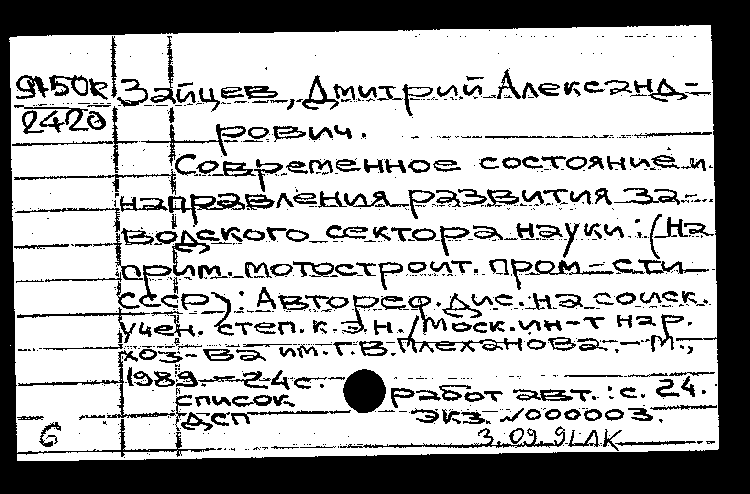 9150к Зайцев, Дмитрий Александ-
2420 рович.
Современное состояние и
направления развития за-
водского сектора науки: (На
прим. мотостроит. пром-сти
СССР): Автореф. дис. на соиск.
учен. степ. к.э.н. / Моск. ин-т нар.
хоз-ва им. Г.В. Плеханова. - М.,
1989. - 24 с.
список работ авт.: с. 24.
ДСП экз. №000003.
6 3.09.91 ЛК